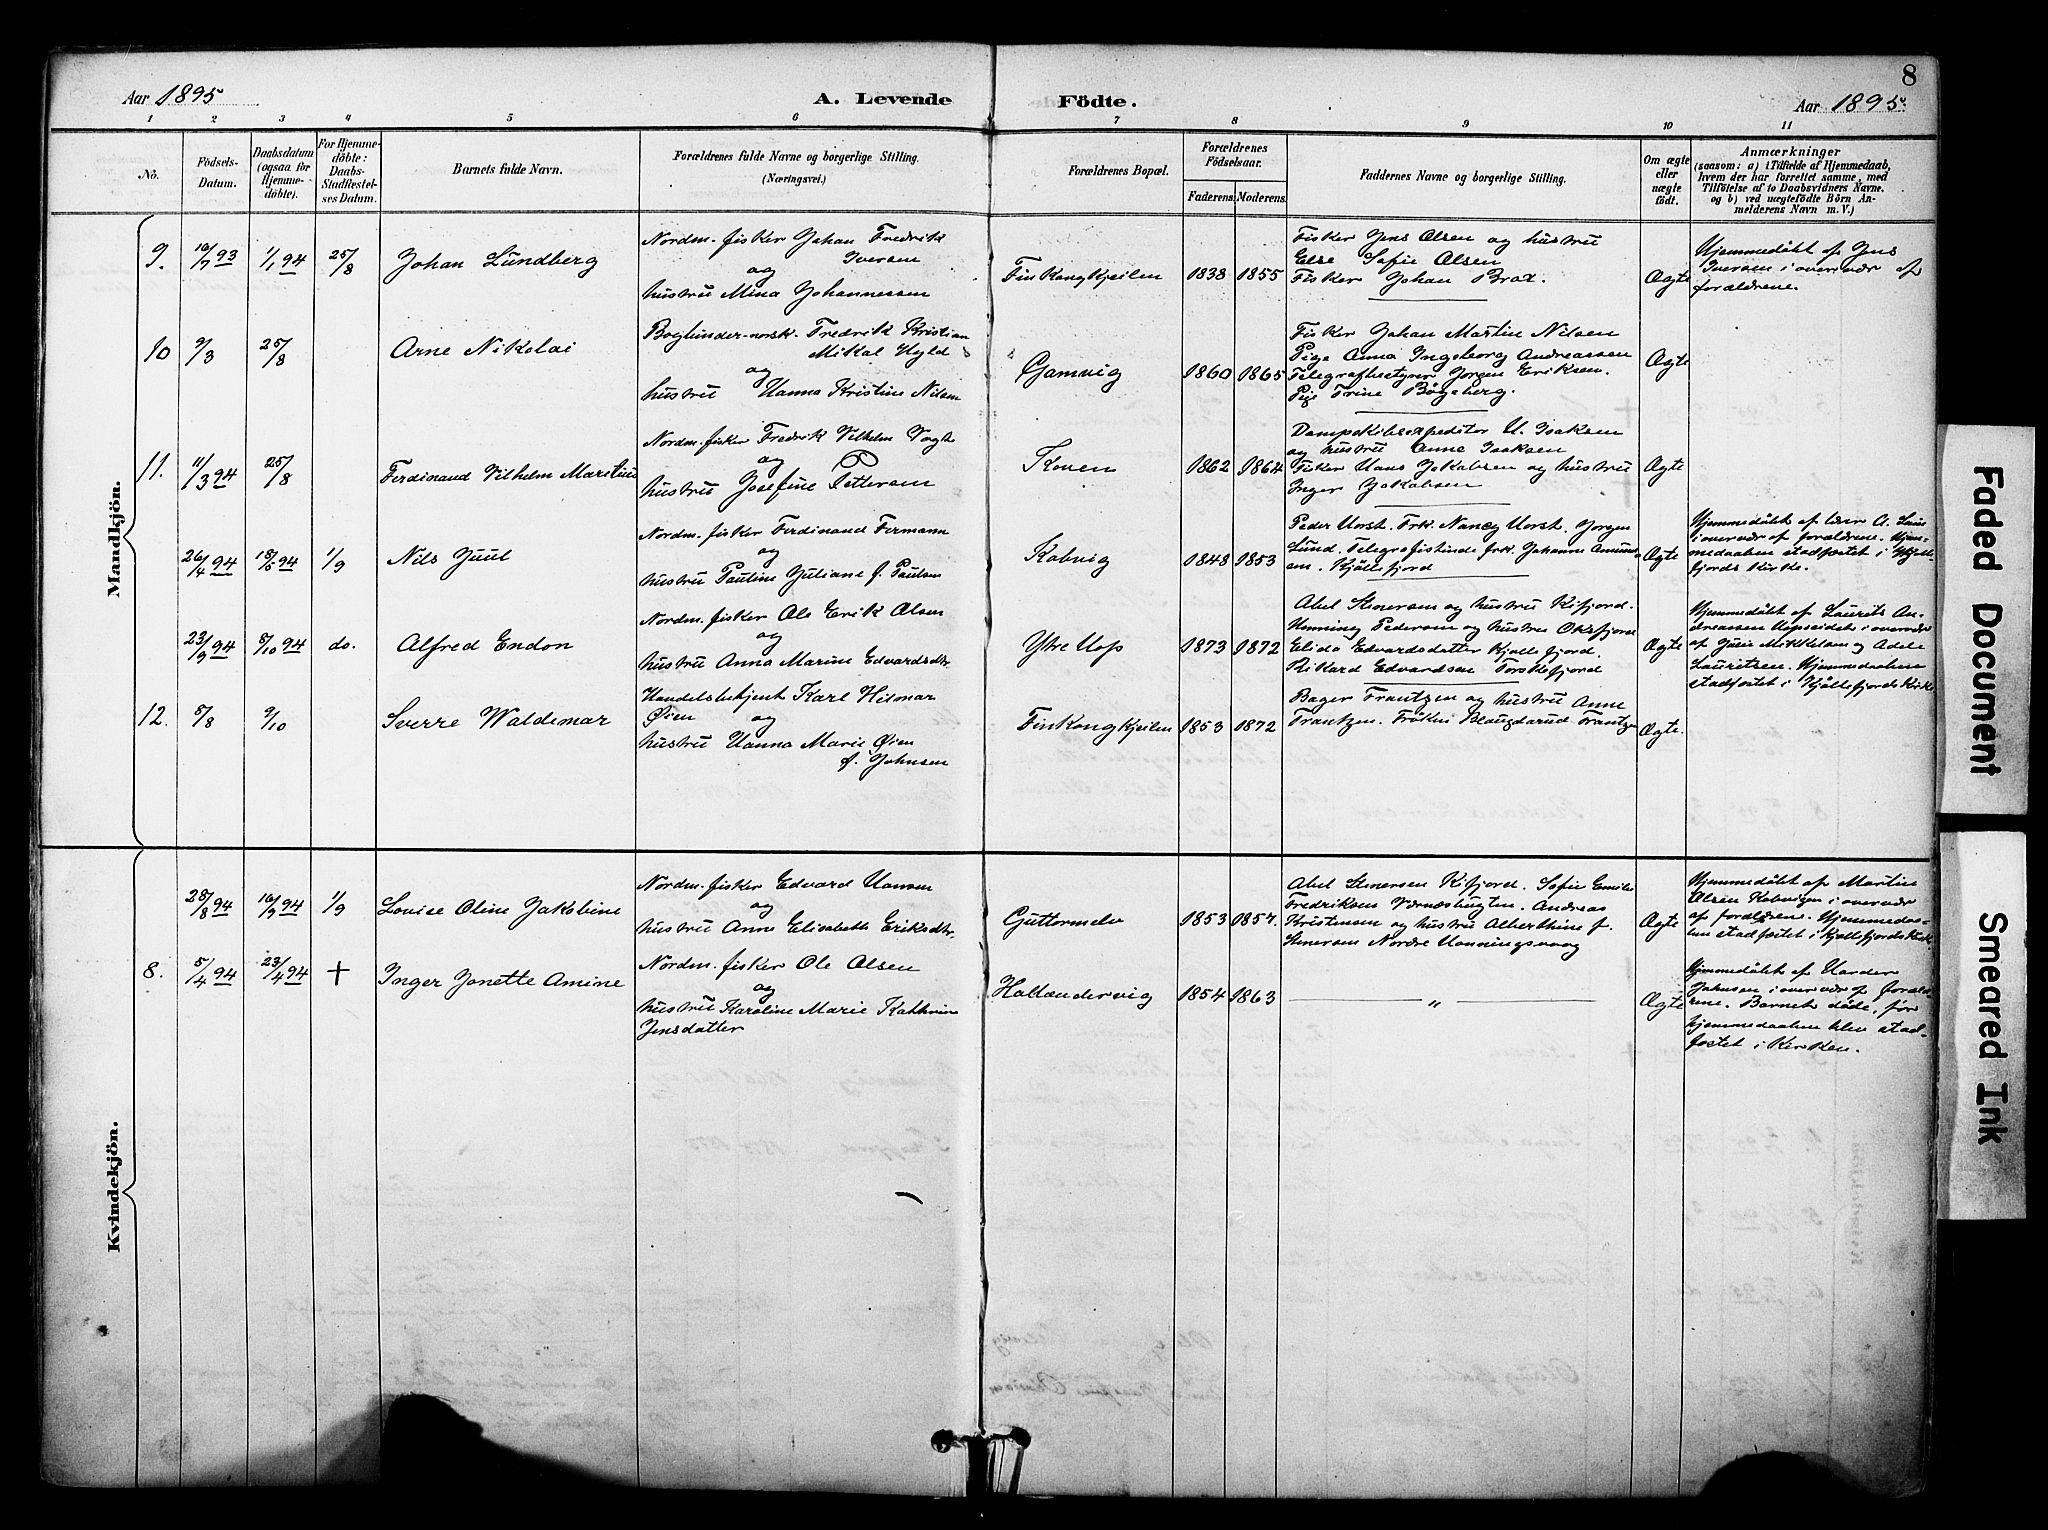 8
Aar 1895
A. Levende
Födte.
Aar 1895.
1 2 3 4 5 6 7 8 9 10 11
No.
Födsels-
Datum.
Daabsdatum
(ogsaa for
Hjemme-
döbte).
For Hjemme-
döbte:
Daabs-
Stadfæstel-
ses Datum.
Barnets fulde Navn.
Forældrenes fulde Navne og borgerlige Stilling.
(Næringsvei.)
Forældrenes Bopæl.
Forældrenes
Födselsaar.
Faderens. Moderens.
Faddernes Navne og borgerlige Stilling.
Om ægte
eller
uægte
födt.
Anmærkninger
(saasom: a) i Tilfælde af Hjemmedaab,
hvem der har forrettet samme, med
Tilföielse af to Daabsvidners Navne.
og b) ved uægtefödte Börn An-
melderens Navn m. V.)
Mandkjön.
9. 10/7 93 1/1 94 25/8
Johan Lundberg
Nordm. fisker Johan Fredrik
Iversen
og
hustru Mina Johannessen
Finkongkjeilen 1838 1855
Fisker Jens Olsen og hustru
Else Sofie Olsen
Fisker Johan Brox.
Ægte
Hjemmedöbt af Jens
Iversen i overvær af
forældrene.
10 9/3 25/8
Arne Nikolai
Fredrik Kristian
Mikal Hyld
og
hustru Hanna Kristine Nilsen
Gamvig 1860 1865
Fisker Johan Martin Nilsen
Pige Anna Ingeborg Andreassen
Telegrafbestyrer Jörgen Eriksen.
Pige Trine Bögeberg.
Ægte
11. 11/3 94 25/8
Ferdinand Vilhelm Maritius
Nordm. fisker Fredrik Vilhelm Vogt
og
hustru Josefine Pettersen
Koven 1862 1864
Dampskibsexpeditor U. Isaksen
og hustru Anne Isaksen
Fisker Hans Jakobsen og hustru
Inger Jakobsen
Ægte
26/4 94 18/5 94 1/9
Nils Juul
Nordm. fisker Ferdinand Fermann
og
hustru Pauline Juliane f. Paulsen
Kobvig 1848 1853
Peder Horst. Frk. Nancy Horst. Jörgen
Lund. Telegrafistinde frk. Johanne Amund-
sen. Kjöllefjord
Ægte
Hjemmedöbt af lærer A. Laus
i overvær af forældrene. Hjem-
medaaben stadfæstet i Kjölle-
fjords Kirke.
23/9 94 8/10 94 do.
Alfred Endon
Nordm. fisker Ole Erik Olsen
og
hustru Anna Marine Edvardsdtr
Ytre Hop 1873 1872
Abel Stenersen og hustru Kifjord.
Henning Pedersen og hustru Oksfjord
Elida Edvardsdatter Kjöllefjord.
Rikard Edvardsen Torskefjord
Ægte
Hjemmedöbt af Laurits An-
dreassen Hopseidet i overvær
af Mikkelsen og Adele
Lauritsen. Hjemmedaaben
stadfæstet i Kjöllefjords Kirke
12. 8/8 9/10
Sverre Waldemar
Handelsbetjent Karl Hilmar
Öien og
hustru Hanna Marie Öien
f. Johnsen
Finkongkjeilen 1853 1872
Bager Frantzen og hustru Anne
Frantzen. Fröken Frantzen
Ægte.
Kvindekjön.
28/8 94 16/9 94 1/9
Louise Oline Jakobine
Nordm. fisker Edvard Hansen
og
hustru Anne Elisabeth Eriksdtr.
Guttormelv 1853 1857.
Abel Stenersen Kifjord. Sofie Emilie
Fredriksen Værneshugten. Andreas
Kristensen og hustru Alberthine f.
Stenersen Nordre Honningsvaag
Ægte
Hjemmedöbt af Martin
Olsen Kobvigen i overvær
af forældrene. Hjemmedaa-
ben stadfæstet i Kjöllefjords Kirke
8. 5/4 94 23/4 94 †
Inger Jonette Amine
Nordm. fisker Ole Olsen
og
hustru Karoline Marie Kathrine
Jensdatter
Hollændervig 1854 1863
— „ —
Ægte
Hjemmedöbt af Harder
Johnsen i overvær af foræld-
rene. Barnet döde, för
hjemmedaaben blev stad-
fæstet i Kirken.
Faded Document
Smeared Ink